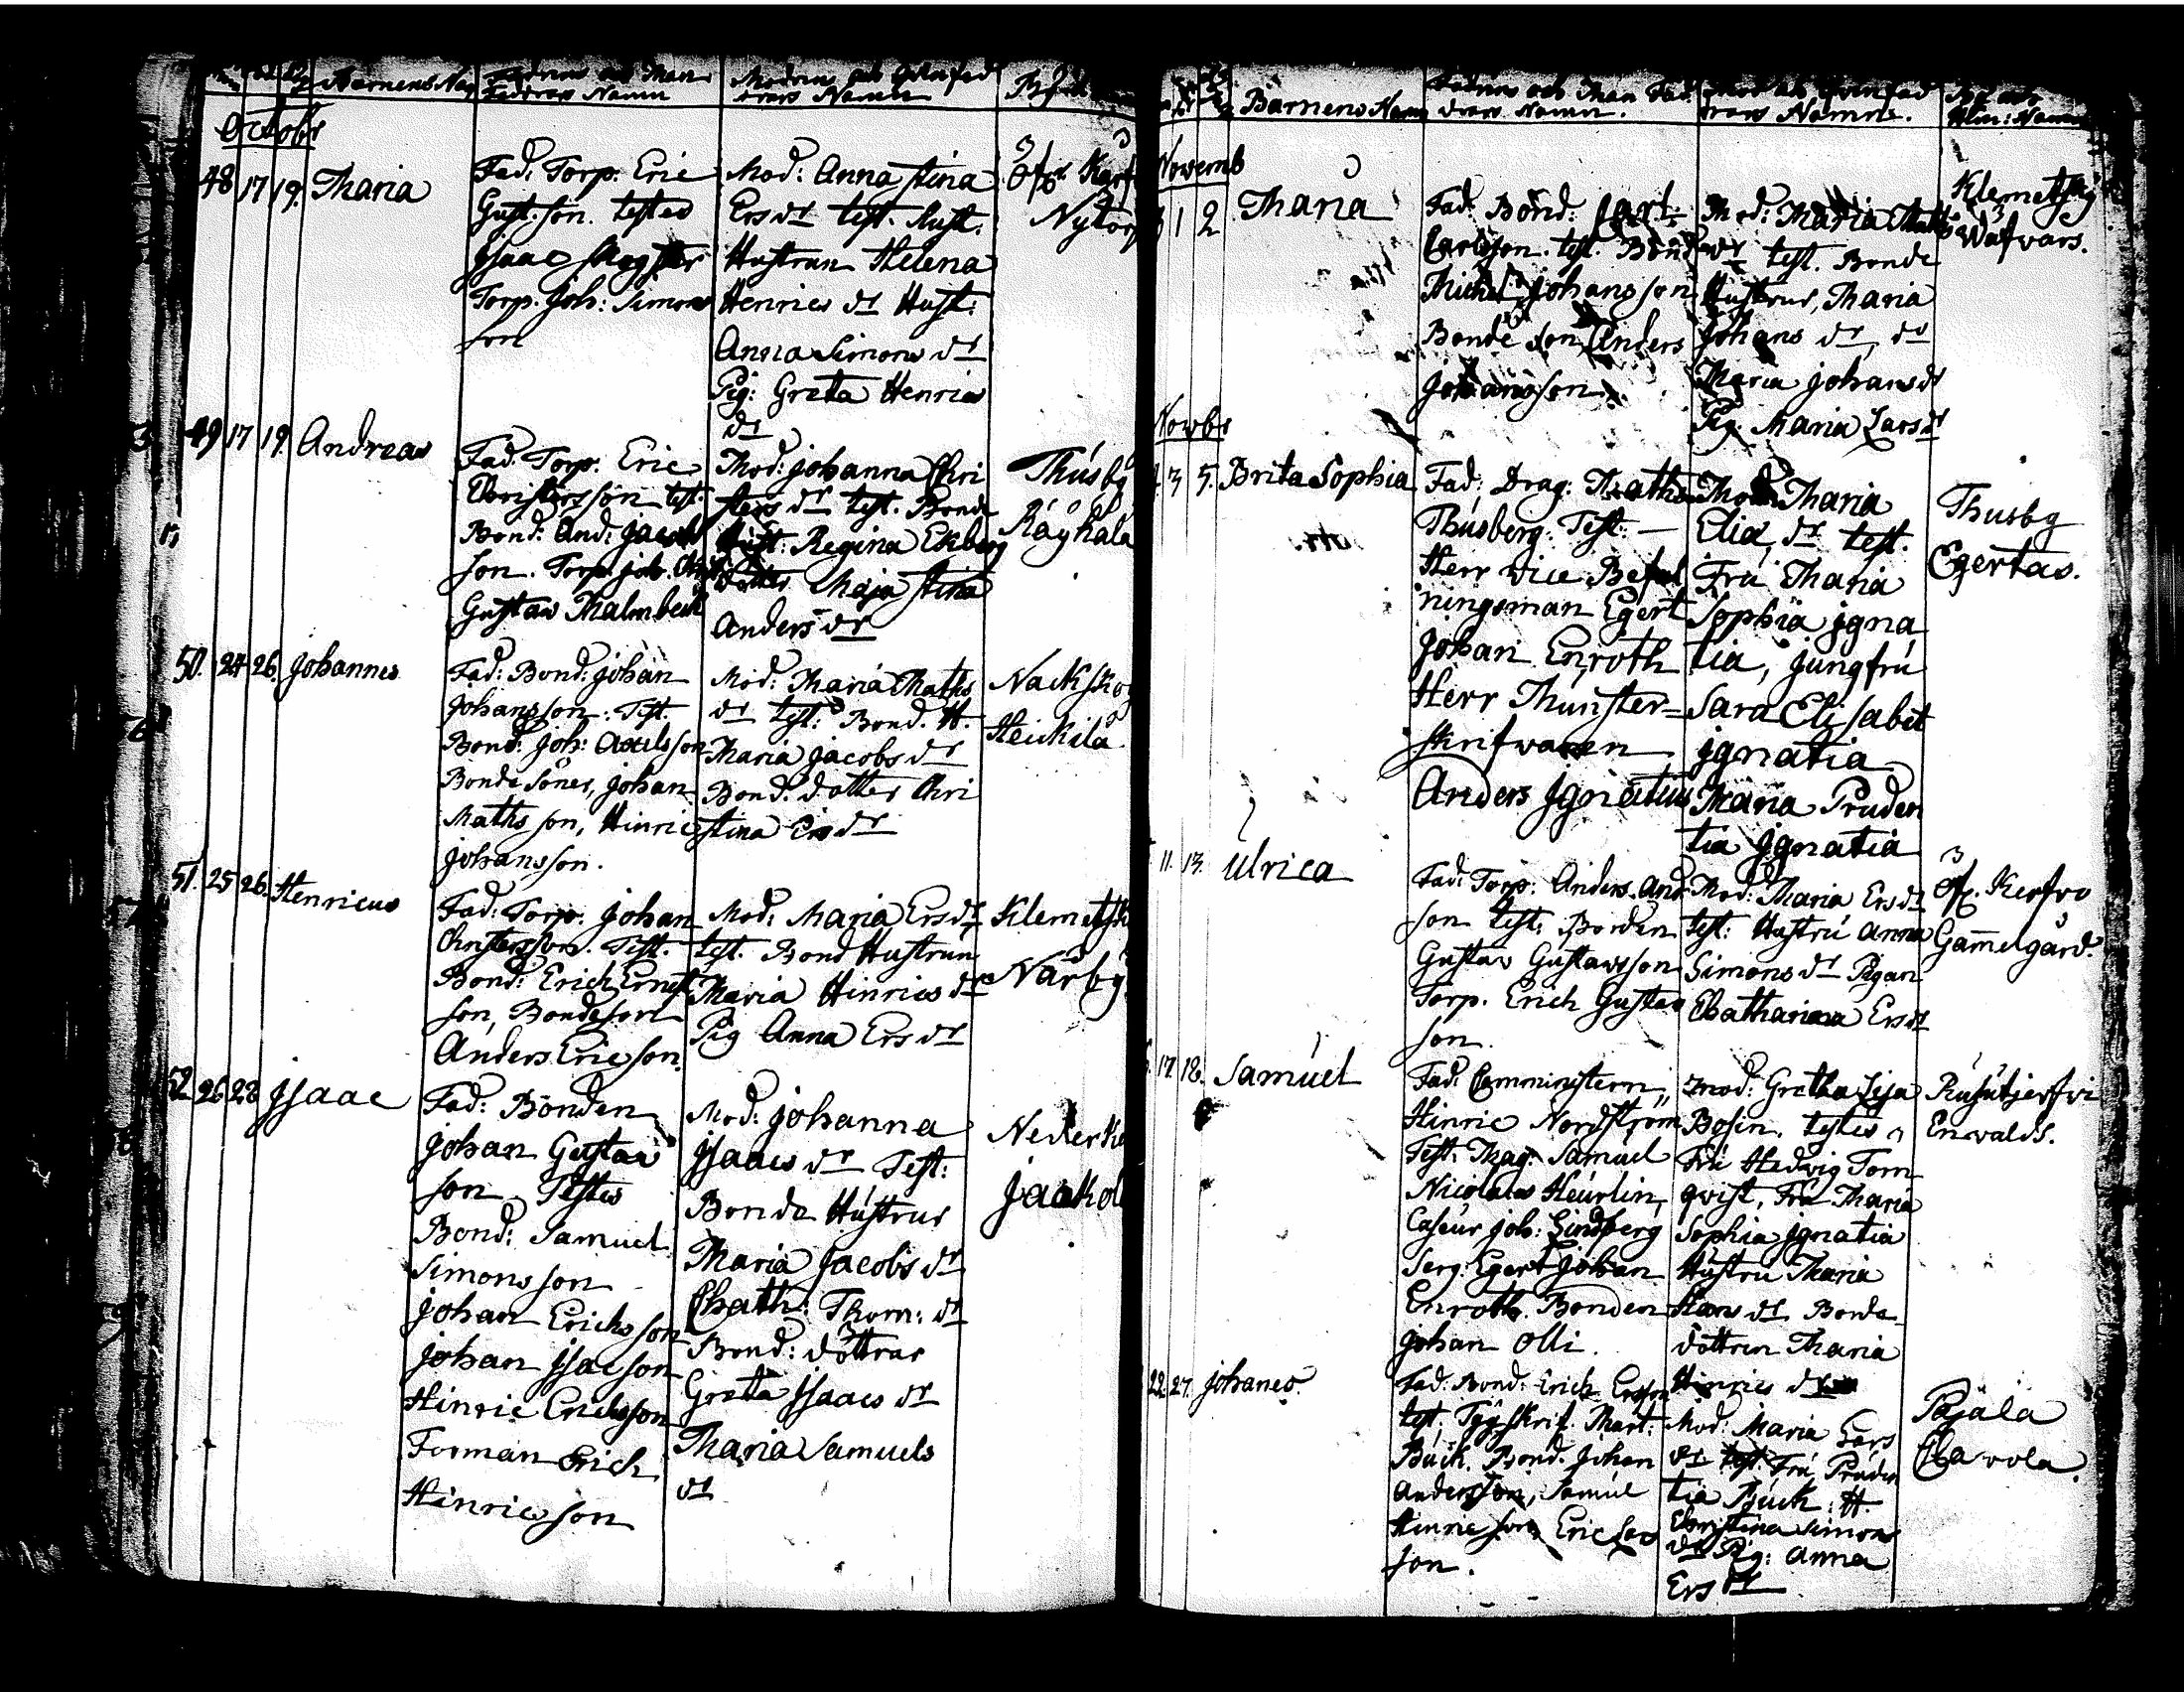 Barnens Nam
Fadrens och Man
Faddrars Namn
Modrens och Qvinfad
drars Namn
Octobr
48 17 19. Maria
Fad: Torp. Eric
Gust:son. testes
Isaac
Torp. Joh: Simons
son
Mod: Anna Stina
Ersdr test. Hust.
Hustrun Helena
Henrics dr Hust:
Anna Simons dr
Pig: Greta Henrics
dr
Nytorp
49 17 19. Andreas
Fad: Torp. Eric
Christersson test.
Bond: And: Jacob
son. Torp. Joh.
Gustav Malmbeck
Mod: Johanna Chri
sters dr test. Bonde
Hust: Regina Ekberg
Dotter Maja Stina
Anders dr
Thusby
Räyhälä
50. 24 26. Johannes
Fad: Bond: Johan
Johansson: Test.
Bond: Joh: Axelsson
Bonde Söner, Johan
Maths son, Hinric
Johansson.
Mod: Maria Maths
dr test: Bond. H.
Maria Jacobs dr
Bond. dotter Chri
stina Ers dr
Nackskog
Heickilä
51. 25 26. Henricus
Fad: Torp. Johan
Christersson. Test.
Bond: Erich Ernst
son, Bondeson
Anders Ericson.
Mod: Maria Ersdr
test. Bond Hustrun
Maria Hinrics dr
Pig Anna Ers dr
Klemetsk
Närby
52. 26 28 Isaac
Fad: Bonden
Johan Gustav
son Testes
Bond: Samuel
Simons son
Johan Erichs son
Johan Isacson
Hinric Erichsson
Forman Erich
Hinricson
Mod: Johanna
Isaacs dr Test:
Bonde Hustrur
Maria Jacobs dr
Chath: Thom: dr
Bond: döttrar
Greta Isaacs dr
Maria Samuels
dr
Neder Ke
Jackol
Barnens Namn
Fadrens och Man Fad
drars Namn.
Mod och Qvinfad
drars Namn.
By och
Hem: Namn
Novemb
1 2 Maria
Fad: Bond: Carl
Carlsson. test. Bond
Michel Johansson
Bonde Son Anders
Johansson.
Mod: Maria Matts
dr test. Bonde
Hustrur, Maria
Johans dr, dr
Maria Johansdr
Pig: Maria Larsdr
Klemetskog
Wäfvars.
Novbr
3 5. Brita Sophia
Fad: Drag: Mathe
Thusberg. Test:
Herr Vice Befal
ningsman Egert
Johan Enroth
Herr Munster-
skrifvaren
Anders Ignatius
Mod: Maria
Elia dr test.
Fru Maria
Sophia Igna
tia, Jungfru
Sara Elisabet
Ignatia
Maria Pruden
tia Ignatia
Thusby
Egertas.
11. 13. Ulrica
Fad: Torp: Anders And
son test. Bonden
Gustav Gustavsson
Torp. Erich Gustav
son.
Mod: Maria Ersdr
test: Hustru Anna
Simons dr Pigan
Chatharina Ersdr
Öf. Kerfvo
Gam̄elgård.
17. 18. Samuel
Fad: Comministern
Hinric Nordström
Test: Mag: Samuel
Nicolaus Heurlin,
Caseur Joh: Lindberg
Serg. Egert Johan
Enroth. Bonden
Johan Olli.
Mod: Gretha Lisa
Bosin. testes
Fru Hedvig Torn
qvist, Fru Maria
Sophia Ignatia
Hustru Maria
Hans dr Bonde
dottren Maria
Hinrics dr
Rusutjerfvi
Envalds.
22. 27. Johanes.
Fad: Bond: Erich Ersson
test, Tygskrif. Mart:
Buck. Bond. Johan
Andersson, Samuel
Hinric son, Eric Lars
son.
Mod: Maria Lars
dr test. Fru, Pruden
tia Buck: H.
Christina Simons
dr Pig: Anna
Ers dr
Pajala
Clavola.